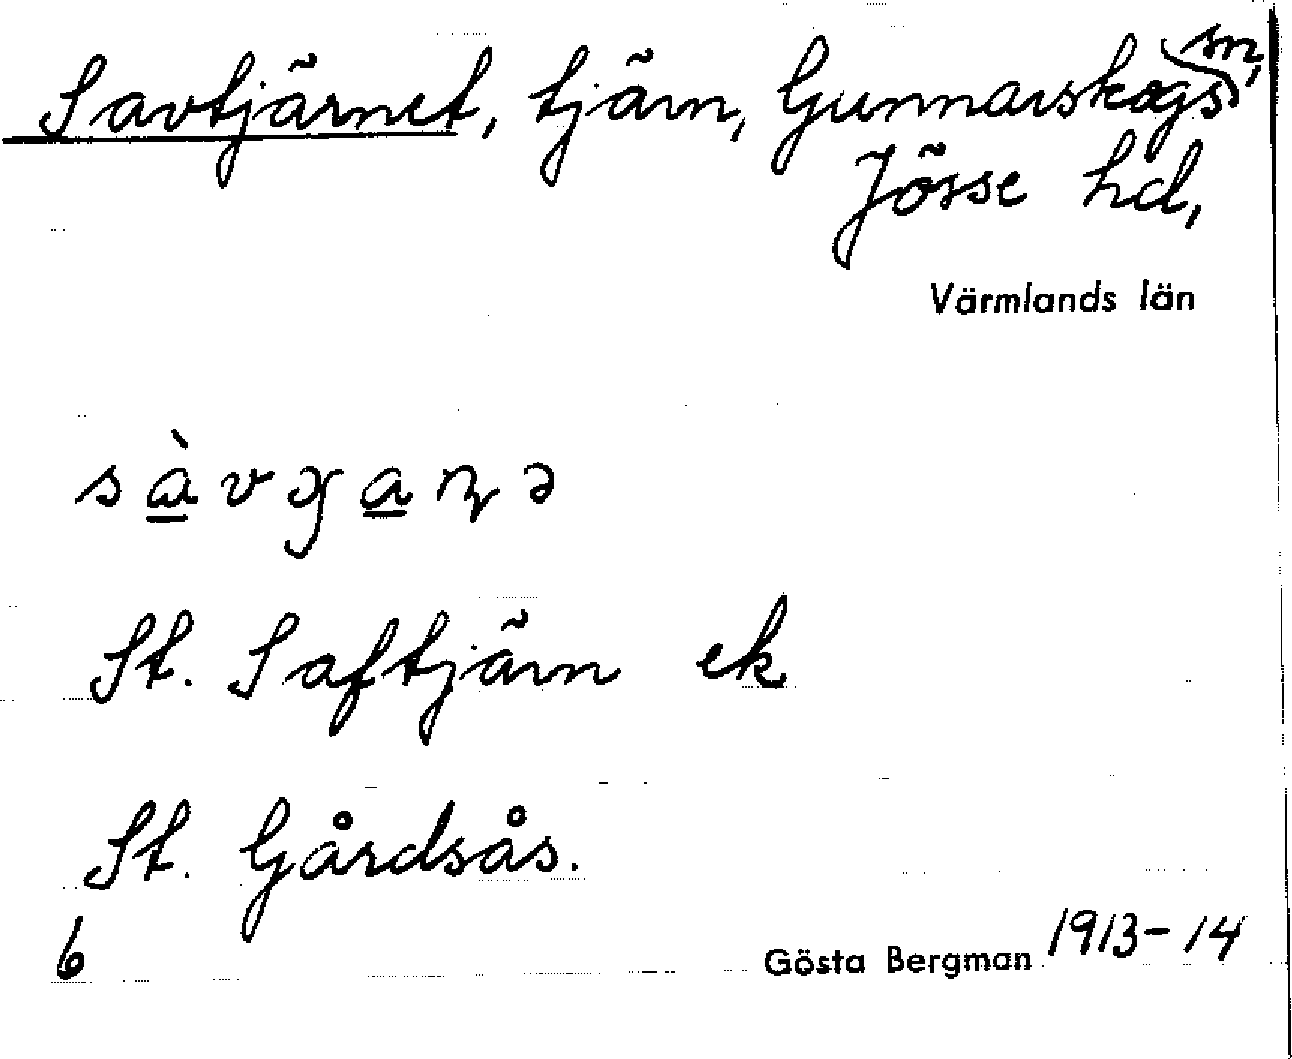 Savtjärnet, tjärn, Gunnarskogs sn,
Jösse hd,
Värmlands län
sàvɟaɳə
St. Saftjärn ek
St. Gårdsås.
6
Gösta Bergman 1913-14